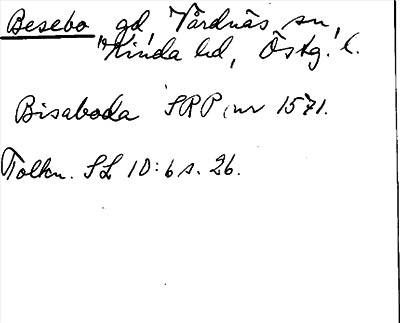 Besebo gd, Vårdnäs sn,
Kinda hd, Östg. l.
Bisaboda SRP, nr 1571.
Tolkn. SL 10:6 s. 26.